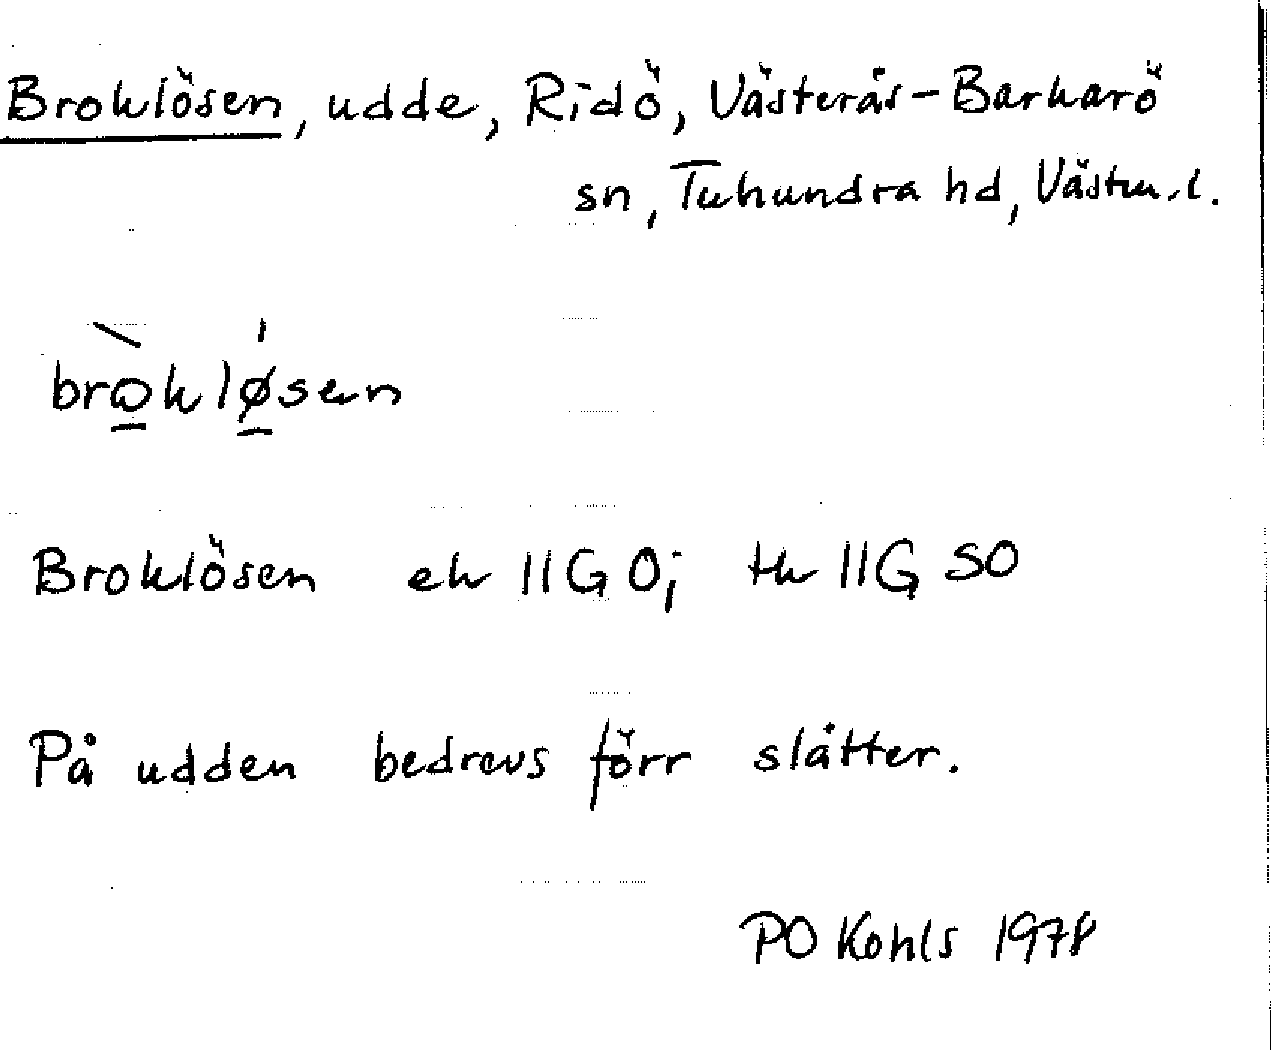 Broklösen, udde, Ridö, Västerås-Barkarö
sn, Tuhundra hd, Västm.l.
bròkløsen
Broklösen ek 11G O; tk 11G SO
På udden bedrevs förr slåtter.
PO Kohls 1978